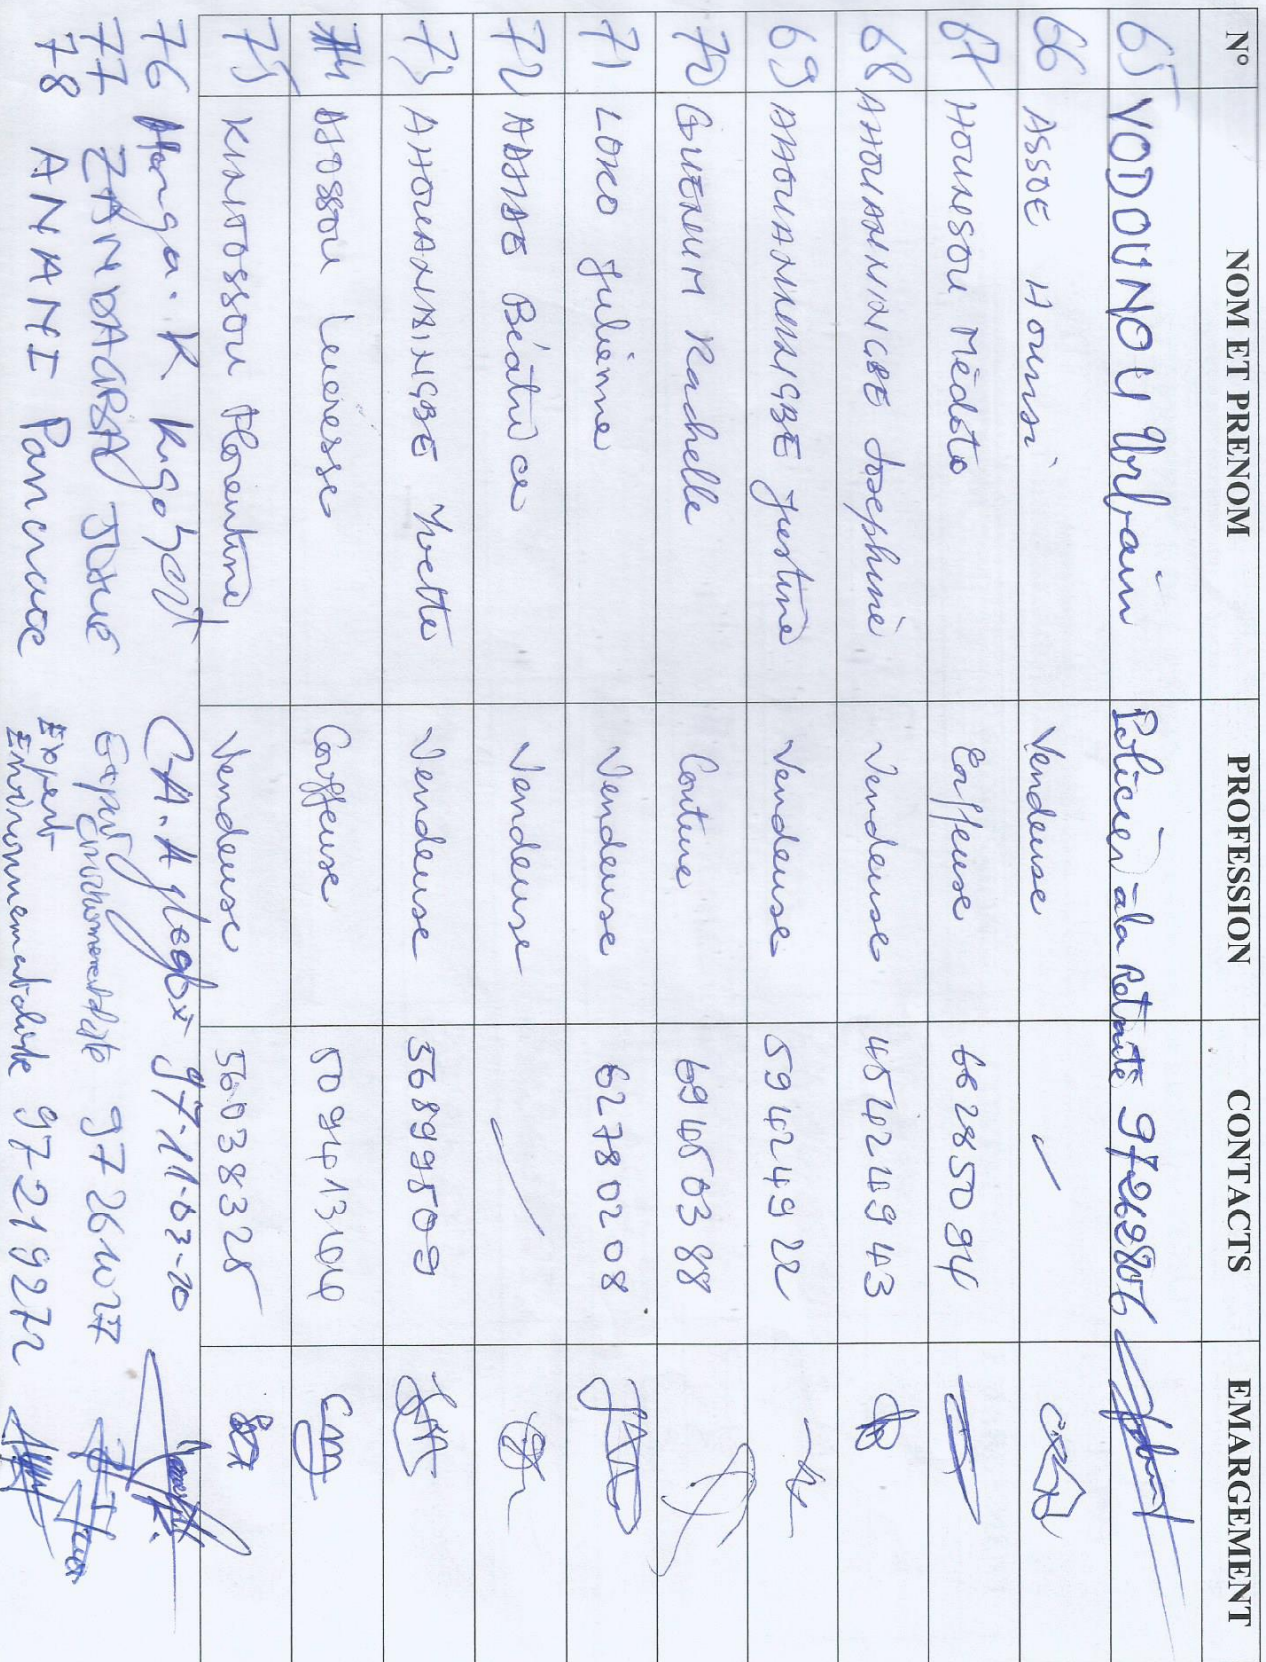 N° NOM ET PRENOM PROFESSION CONTACTS EMARGEMENT
65 VODOUNOU Urbain Policier à la Retraite
66 ASSOE Hounsi Vendeuse
67 HOUNSOU Médato Coiffeuse 66285094
68 AHOUANNINGBE Josephine Vendeuse 45424943
69 AHOUANNINGBE Justine Vendeuse 59424922
70 GUENUM Rachelle Couture 69450388
71 LOKO Julienne Vendeuse 62780208
72 Béatrice Vendeuse
73 AHOUANNINGBE Yvette Vendeuse 56899509
74 AOSSOU Lucresse Coiffeuse
75 KINTOSSOU Florentine Vendeuse 56038325
76 K Rigobert C.A. 97-11-03-20
77 ZANDAGBA Expert Environnementaliste
78 ANANI Pancrace Expert Environnementaliste 97219272